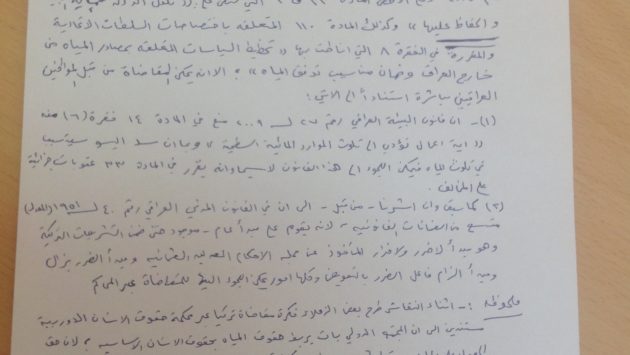 والحفاظ عليها » وكذلك المادة ١١٠ المتعلقة باختصاصات السلطات الاتحادية
والمقررة في الفقرة ٨ التي اناطت بها « تخطيط السياسات المتعلقة بمصادر المياه من
خارج العراق وضمان مناسيب تدفق المياه » الا انه يمكن المقاضاة من قبل المواطنين
العراقيين مباشرة استناداً الى الآتي :
(١) - ان قانون البيئة العراقي رقم ٢٧ لـ ٢٠٠٩ منع في المادة ١٤ فقرة (٦) منه
« اية اعمال تؤدي الى تلوث الموارد المائية السطحية » وبما ان سد اليسو سيتسبب
في تلوث المياه فيمكن اللجوء الى هذا القانون لاسيما وانه يقرر في المادة ٣٣ عقوبات جزائية
على المخالف .
(٢) كما سبق وان اشرنا - من قبل - الى ان في القانون المدني العراقي رقم ٤٠ لـ ١٩٥١ (المعدل)
متسع من الضمانات القانونية - لانه يقوم على مبدأ عام - موجود حتى ضمن التشريعات التركية
وهو مبدأ لا ضرر ولا ضرار المأخوذ عن مجلة الاحكام العدلية العثمانية ومبدأ الضرر يزال
ومبدأ الزام فاعل الضرر بالتعويض وكلها امور يمكن اللجوء اليها للمقاضاة عبر المحاكم
ملحوظة : - اثناء النقاش طرح بعض الزملاء فكرة مقاضاة تركيا عبر محكمة حقوق الانسان الاوربية
مستندين الى ان المجتمع الدولي بات يربط حقوق المياه بحقوق الانسان الاساسية » لان حق